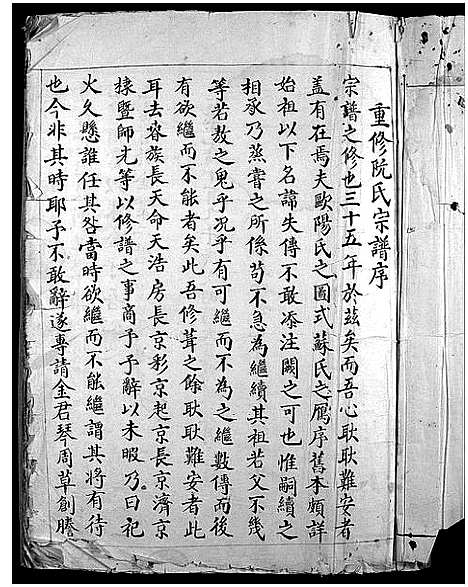 重修阮氏宗譜序
宗譜之修也三十五年於茲矣而吾心耿耿難安者
蓋有在焉夫歐陽氏之圖式蘇氏之鴈序舊本頗詳
始祖以下名諱失傳不敢添注闕之可也惟嗣續之
相承乃蒸嘗之所係苟不急為繼續其祖若父不幾
等若敖之鬼乎况乎有可繼而不為之繼數傳而後
有欲繼而不能者矣此吾修葺之餘耿耿難安者此
耳去春族長天命天浩房長京彩京起京長京濟京
棣暨師尤等以修譜之事商予予辭以未暇乃曰祀
火久懸誰任其咎當時欲繼而不能繼謂其將有待
也今非其時耶予不敢辭遂專請金君琴周草創謄